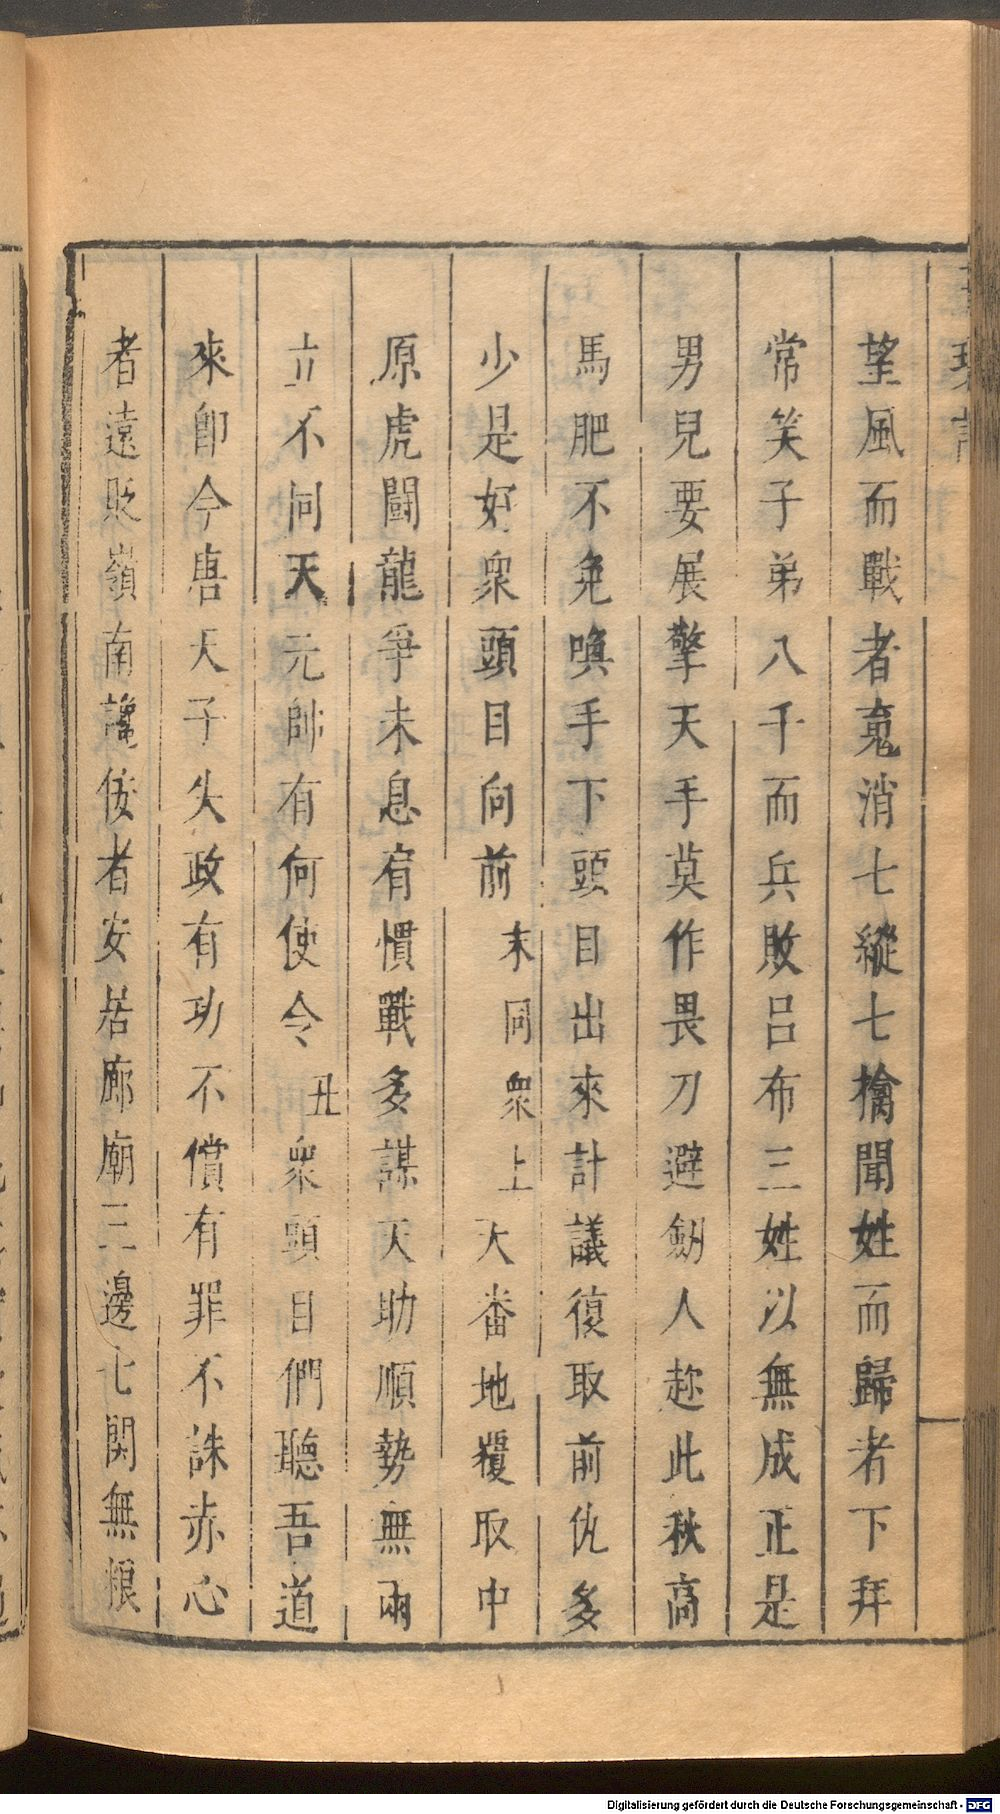 望風而戰者䰟消七縱七擒聞姓而歸者下拜
常笑子弟八千而兵敗呂布三姓以無成正是
男兒要展擎天手莫作畏刀避劒人趂此秋高
馬肥不免喚手下頭目出來計議復取前仇多
少是好衆頭目向前末同衆上大番地覆取中
原虎鬪龍爭未息宿慣戰多謀天助順勢無兩
立不同天元帥有何使令丑衆頭目們聽吾道
來卽今唐天子失政有功不償有罪不誅赤心
者遠貶嶺南讒佞者安居廊廟三邊七関無粮
Digitalisierung gefördert durch die Deutsche Forschungsgemeinschaft - DFG